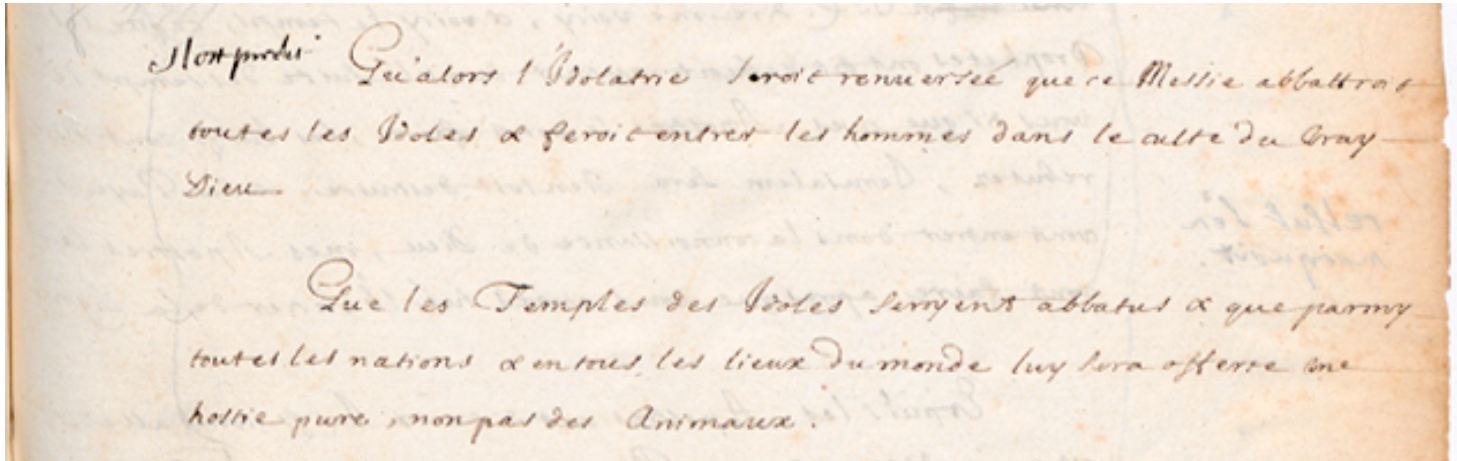 Qu'alors l'Idolatrie seroit renuersée que ce Messie abbattroit
toutes les Idoles & feroit entrer les hommes dans le culte du vray
Dieu
Que les Temples des Idoles seroyent abbatus & que parmy
toutes les nations & en tous les lieux du monde luy sera offerte vne
hostie pure, non pas des Animaux.